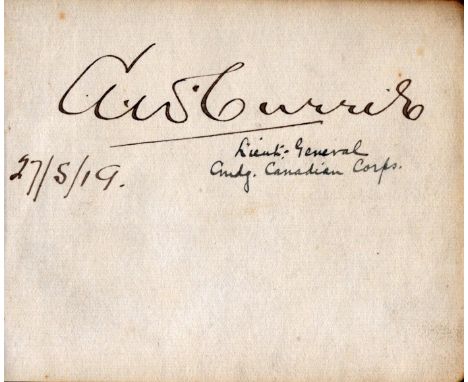 A.W. Currie
Lieut. General
27/5/19.
Cmdg. Canadian Corps.